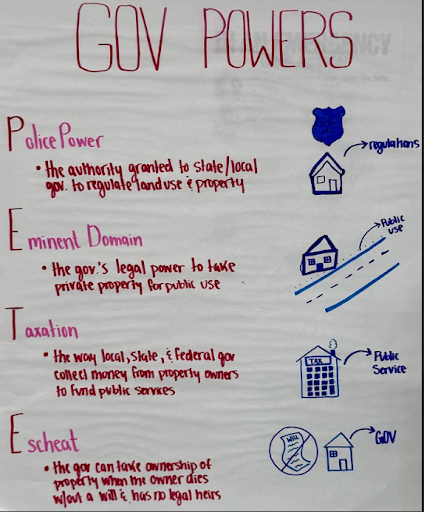 GOV POWERS
Police Power
regulations
• the authority granted to state/local
gov. to regulate land use & property
Eminent Domain
Public
use
• the gov.'s legal power to take
private property for public use
Taxation
TAX
Public
Service
• the way local, state, & federal gov
collect money from property owners
to fund public services
Escheat
WILL
GOV
• the gov can take ownership of
property when the owner dies
w/out a will & has no legal heirs